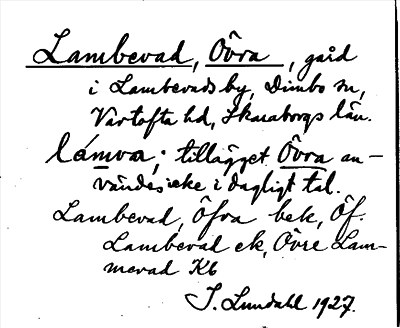 Lambevad, Övra, gård
i Lambevads by, Dimbo sn,
Vartofta hd, Skaraborgs län.
lámva; tillägget Övra an-
vändes icke i dagligt tal.
Lambevad, Öfra bek, Öf.
Lambevad ek, Övre Lam-
mevad Kb
J. Lundahl 1927.